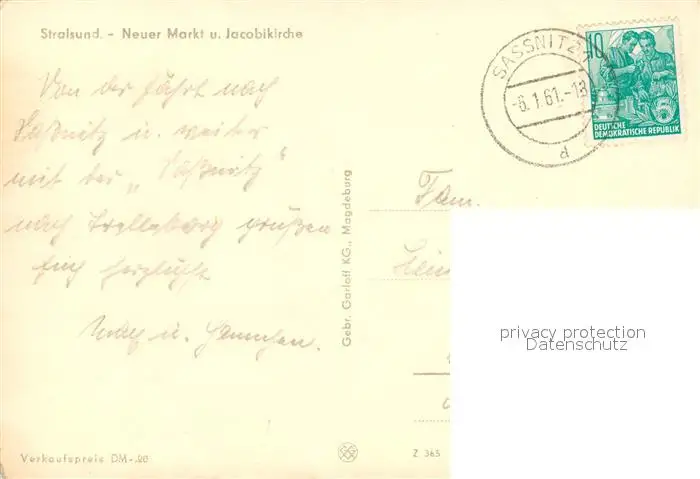 Stralsund. - Neuer Markt u. Jacobikirche
Von der Fahrt nach
Saßnitz u. weiter
mit der „Saßnitz"
nach Trelleborg grüßen
Euch herzlichst
u. Hannchen.
Verkaufspreis DM-.20
Gebr. Garloff KG., Magdeburg
Z 365
SASSNITZ 1
-6.1.61.-13
d
10
DEUTSCHE
DEMOKRATISCHE REPUBLIK
5
Fam.
privacy protection
Datenschutz